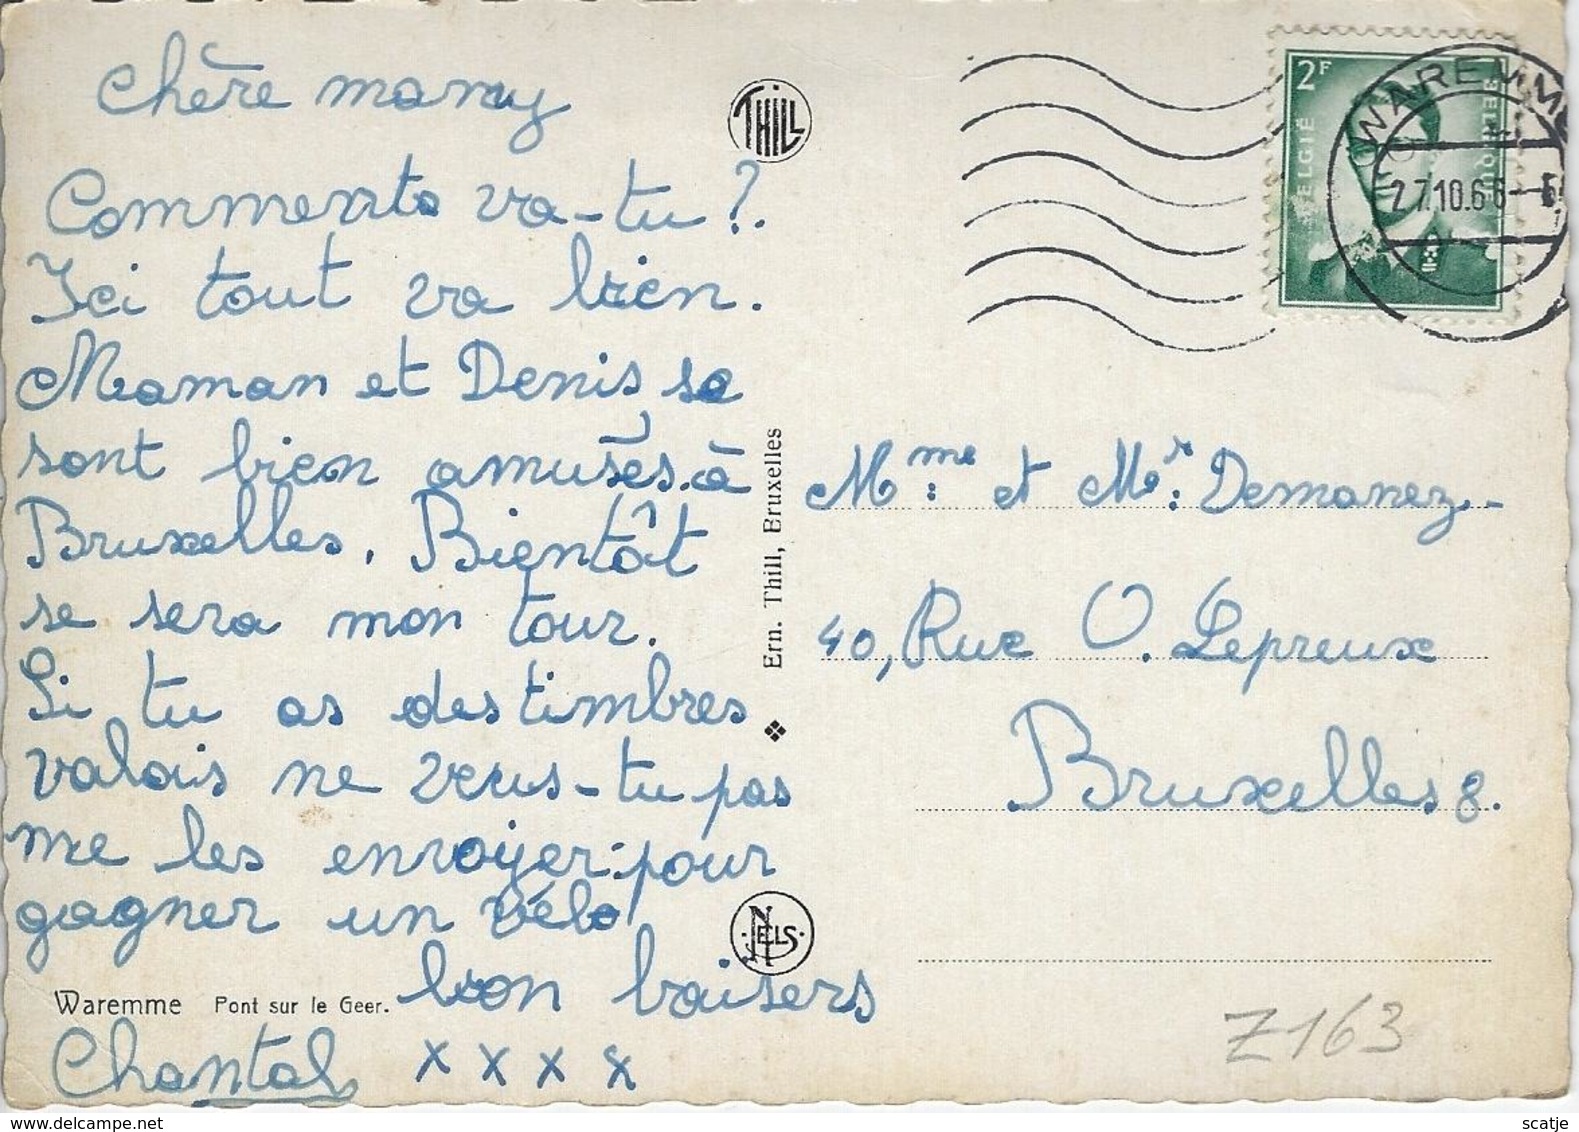 chère mamy
Comments va-tu ?.
Ici tout va bien.
Maman et Denis se
sont bien amusés à
Bruxelles. Bientôt
se sera mon tour.
Si tu as des timbres
valois ne veus-tu pas
me les envoyer pour
gagner un vélo
bon baisers
Chantal x x x x
Waremme Pont sur le Geer.
THILL
Ern. Thill, Bruxelles
NELS
2F
BELGIË
BELGIQUE
WAREMME
27.10.66
Mme: et Mr: Demanez
40, Rue O. Lepreux
Bruxelles 8.
Z163
www.delcampe.net
scatje